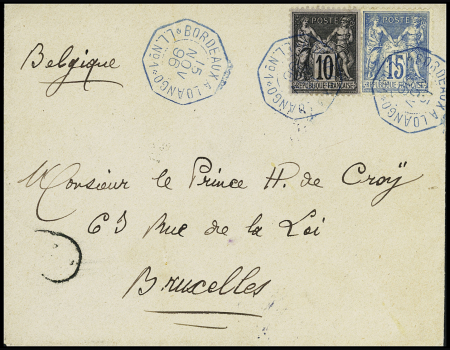 BORDEAUX A LOANGO L.L. Nº1
15
NOV
96
POSTE
10
REPUBLIQUE FRANÇAISE
POSTE
15
REPUBLIQUE FRANÇAISE
Belgique
Monsieur le Prince H. de Croÿ
63 Rue de la Loi
Bruxelles